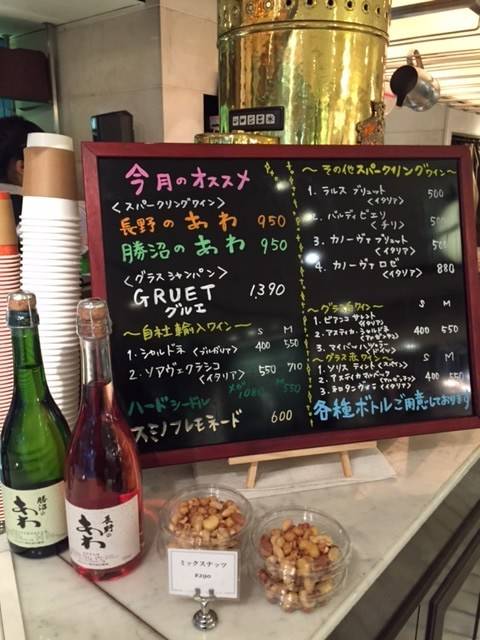 今月のオススメ
<スパークリングワイン>
長野の あわ 950
勝沼の あわ 950
<グラスシャンパン>
GRUET 1,390
グルエ
～自社輸入ワイン～ S M
1. シャルドネ <ブルガリア> 400 550
2. ソアヴェクラシコ 550 710
<イタリア>
ハードシードル 1080
スミノフレモネード 600
～その他スパークリングワイン～
1. ラルス ブリュット 500
<イタリア>
2. バルディビエソ 500
<チリ>
3. カノーヴァ ブリュット 500
<イタリア>
4. カノーヴァ ロゼ 880
<イタリア>
～グラス白ワイン～ S M
1. ビアンコ サレント
<イタリア>
2. アスティカ シャルドネ 400 550
～グラス赤ワイン～
1. ソリス ティント <スペイン>
400 550
各種ボトルご用意しております
勝沼の
あわ
長野の
あわ
ミックスナッツ
¥290